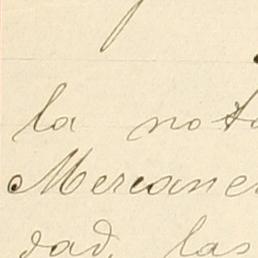 la nota
Mercane
dad, las